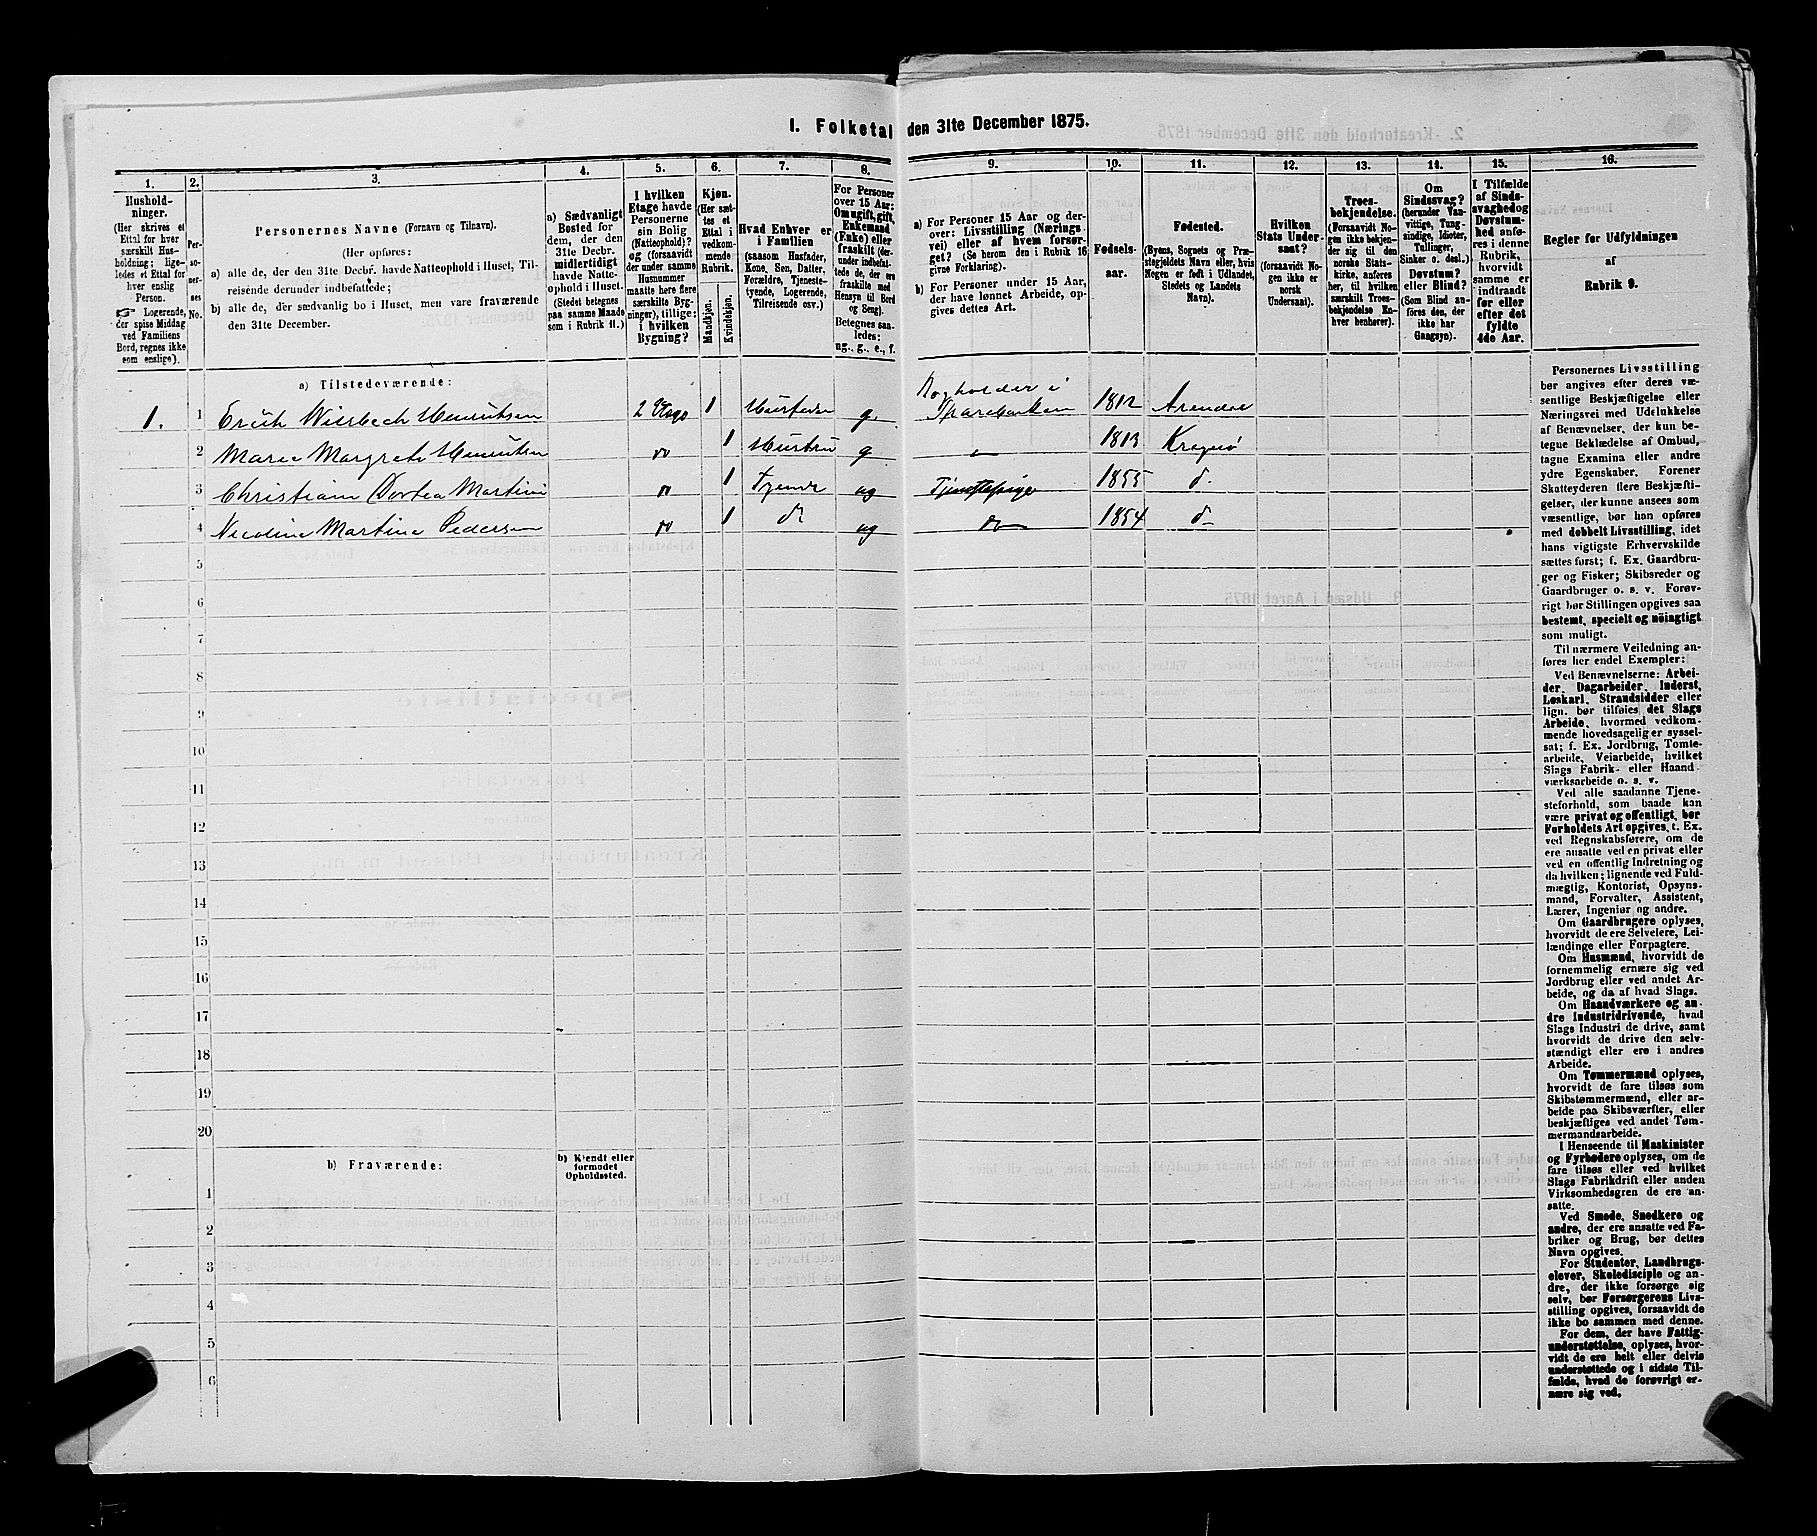 1. Folketal den 31te December 1875.
1.
Hushold-
ninger.
(Her skrives et
Ettal for hver
særskilt Hus-
holdning; lige-
ledes et Ettal for
hver enslig
Person.
☞ Logerende,
der spise Middag
ved Familiens
Bord, regnes ikke
som enslige).
2.
Per-
so-
ner-
nes
No.
3.
Personernes Navne (Fornavn og Tilnavn).
(Her opføres:
a) alle de, der den 31te Decbr. havde Natteophold i Huset, Til-
reisende derunder indbefattede;
b) alle de, der sædvanlig bo i Huset, men vare fraværende
den 31te December.
4.
a) Sædvanligt
Bosted for
dem, der den
31te Decbr.
midlertidigt
havde Natte-
ophold i Huset.
(Stedet betegnes
paa samme Maade
som i Rubrik 11.)
5.
I hvilken
Etage havde
Personerne
sin Bolig
(Natteophold)?
og (forsaavidt
der under samme
Husnummer
maatte høre flere
særskilte Byg-
ninger), tillige:
i hvilken
Bygning?
6.
Kjøn.
(Her sæt-
tes et
Ettal i
vedkom-
mende
Rubrik.
Mandkjøn.
Kvindekjøn.
7.
Hvad Enhver er
i Familien
(saasom Husfader,
Kone, Søn, Datter,
Forældre, Tjeneste-
tyende, Logerende,
Tilreisende osv.)
8.
For Personer
over 15 Aar:
Om ugift, gift,
Enkemand
(Enke) eller
fraskilt (der-
under indbefat-
tede de, der ere
fraskilte med
Hensyn til Bord
og Seng).
Betegnes saa-
ledes:
ug., g., e., f.
9.
a) For Personer 15 Aar og der-
over: Livsstilling (Nærings-
vei) eller af hvem forsør-
get? (Se herom den i Rubrik 16
givne Forklaring).
b) For Personer under 15 Aar,
der have lønnet Arbeide, op-
gives dettes Art.
10.
Fødsels-
aar.
11.
Fødested.
(Byens, Sognets og Præ-
stegjeldets Navn eller, hvis
Nogen er født i Udlandet,
Stedets og Landets
Navn).
12.
Hvilken
Stats Under-
saat?
(forsaavidt No-
gen ikke er
norsk
Undersaat).
13.
Troes-
bekjendelse.
(Forsaavidt No-
gen ikke bekjen-
der sig til den
norske Stats-
kirke, anføres
her, til hvilken
særskilt Troes-
bekjendelse En-
hver henhører).
14.
Om
Sindssvag?
(herunder Van-
vittige, Tung-
sindige, Idioter,
Tullinger,
Sinker o. desl.)
Døvstum?
eller Blind?
(Som Blind an-
føres den, der
ikke har
Gangsyn).
15.
I Tilfælde
af Sinds-
svaghed og
Døvstum-
hed anfø-
res i denne
Rubrik,
hvorvidt
samme er
indtraadt
før eller
efter det
fyldte
4de Aar.
16.
Regler for Udfyldningen
af
Rubrik 9.
a) Tilstedeværende:
1. 1 Erich Wiesbech Henrichsen 2 Etage 1 Husfader g Bogholder i Sparebanken 1812 Arendal
2 Maren Margrete Henrichsen do 1 Hustru g 1813 Kragerø
3 Christiane Dortea Martini do 1 Tyende ug Tjenestepige 1855 d-
4 Nicoline Martine Pedersen do 1 d- ug do 1854 d-
5
6
7
8
9
10
11
12
13
14
15
16
17
18
19
20
b) Fraværende:
b) Kjendt eller
formodet
Opholdssted.
1
2
3
4
5
6
Personernes Livsstilling
bør angives efter deres væ-
sentlige Beskjæftigelse eller
Næringsvei med Udelukkelse
af Benævnelser, der kun be-
tegne Beklædelse af Ombud,
tagne Examina eller andre
ydre Egenskaber. Forener
Skatteyderen flere Beskjæfti-
gelser, der kunne ansees som
væsentlige, bør han opføres
med dobbelt Livsstilling, idet
hans vigtigste Erhvervskilde
sættes først; f. Ex. Gaardbru-
ger og Fisker; Skibsreder og
Gaardbruger o. s. v. Forøv-
rigt bør Stillingen opgives saa
bestemt, specielt og nøiagtigt
som muligt.
Til nærmere Veiledning an-
føres her endel Exempler:
Ved Benævnelserne: Arbei-
der, Dagarbeider, Inderst,
Løskarl, Strandsidder eller
lign. bør tilføies det Slags
Arbeide, hvormed vedkom-
mende hovedsagelig er syssel-
sat; f. Ex. Jordbrug, Tomte-
arbeide, Veiarbeide, hvilket
Slags Fabrik- eller Haand-
værksarbeide o. s. v.
Ved alle saadanne Tjene-
steforhold, som baade kan
være privat og offentligt, bør
Forholdets Art opgives, t. Ex.
ved Regnskabsførere, om de
ere ansatte ved en privat eller
ved en offentlig Indretning og
da hvilken; lignende ved Fuld-
mægtig, Kontorist, Opsyns-
mand, Forvalter, Assistent,
Lærer, Ingeniør og andre.
Om Gaardbrugere oplyses,
hvorvidt de ere Selveiere, Lei-
lændinge eller Forpagtere.
Om Husmænd, hvorvidt de
fornemmelig ernære sig ved
Jordbrug eller ved andet Ar-
beide, og da af hvad Slags.
Om Haandværkere og an-
dre Industridrivende, hvad
Slags Industri de drive, samt
hvorvidt de drive den selv-
stændigt eller ere i andres
Arbeide.
Om Tømmermænd oplyses,
hvorvidt de fare tilsøs som
Skibstømmermænd, eller ar-
beide paa Skibsværfter, eller
beskjæftiges ved andet Tøm-
mermandsarbeide.
I Henseende til Maskinister
og Fyrbødere oplyses, om de
fare tilsøs eller ved hvilket
Slags Fabrikdrift eller anden
Virksomhedsgren de ere an-
satte.
Ved Smede, Snedkere og
andre, der ere ansatte ved Fa-
briker og Brug, bør dettes
Navn opgives.
For Studenter, Landbrugs-
elever, Skoledisciple og an-
dre, der ikke forsørge sig
selv, bør Forsørgerens Livs-
stilling opgives, forsaavidt de
ikke bo sammen med denne.
For dem, der have Fattig-
understøttelse, oplyses, hvor-
vidt de ere helt eller delvis
understøttede og i sidste Til-
fælde, hvad de forøvrigt er-
nære sig ved.